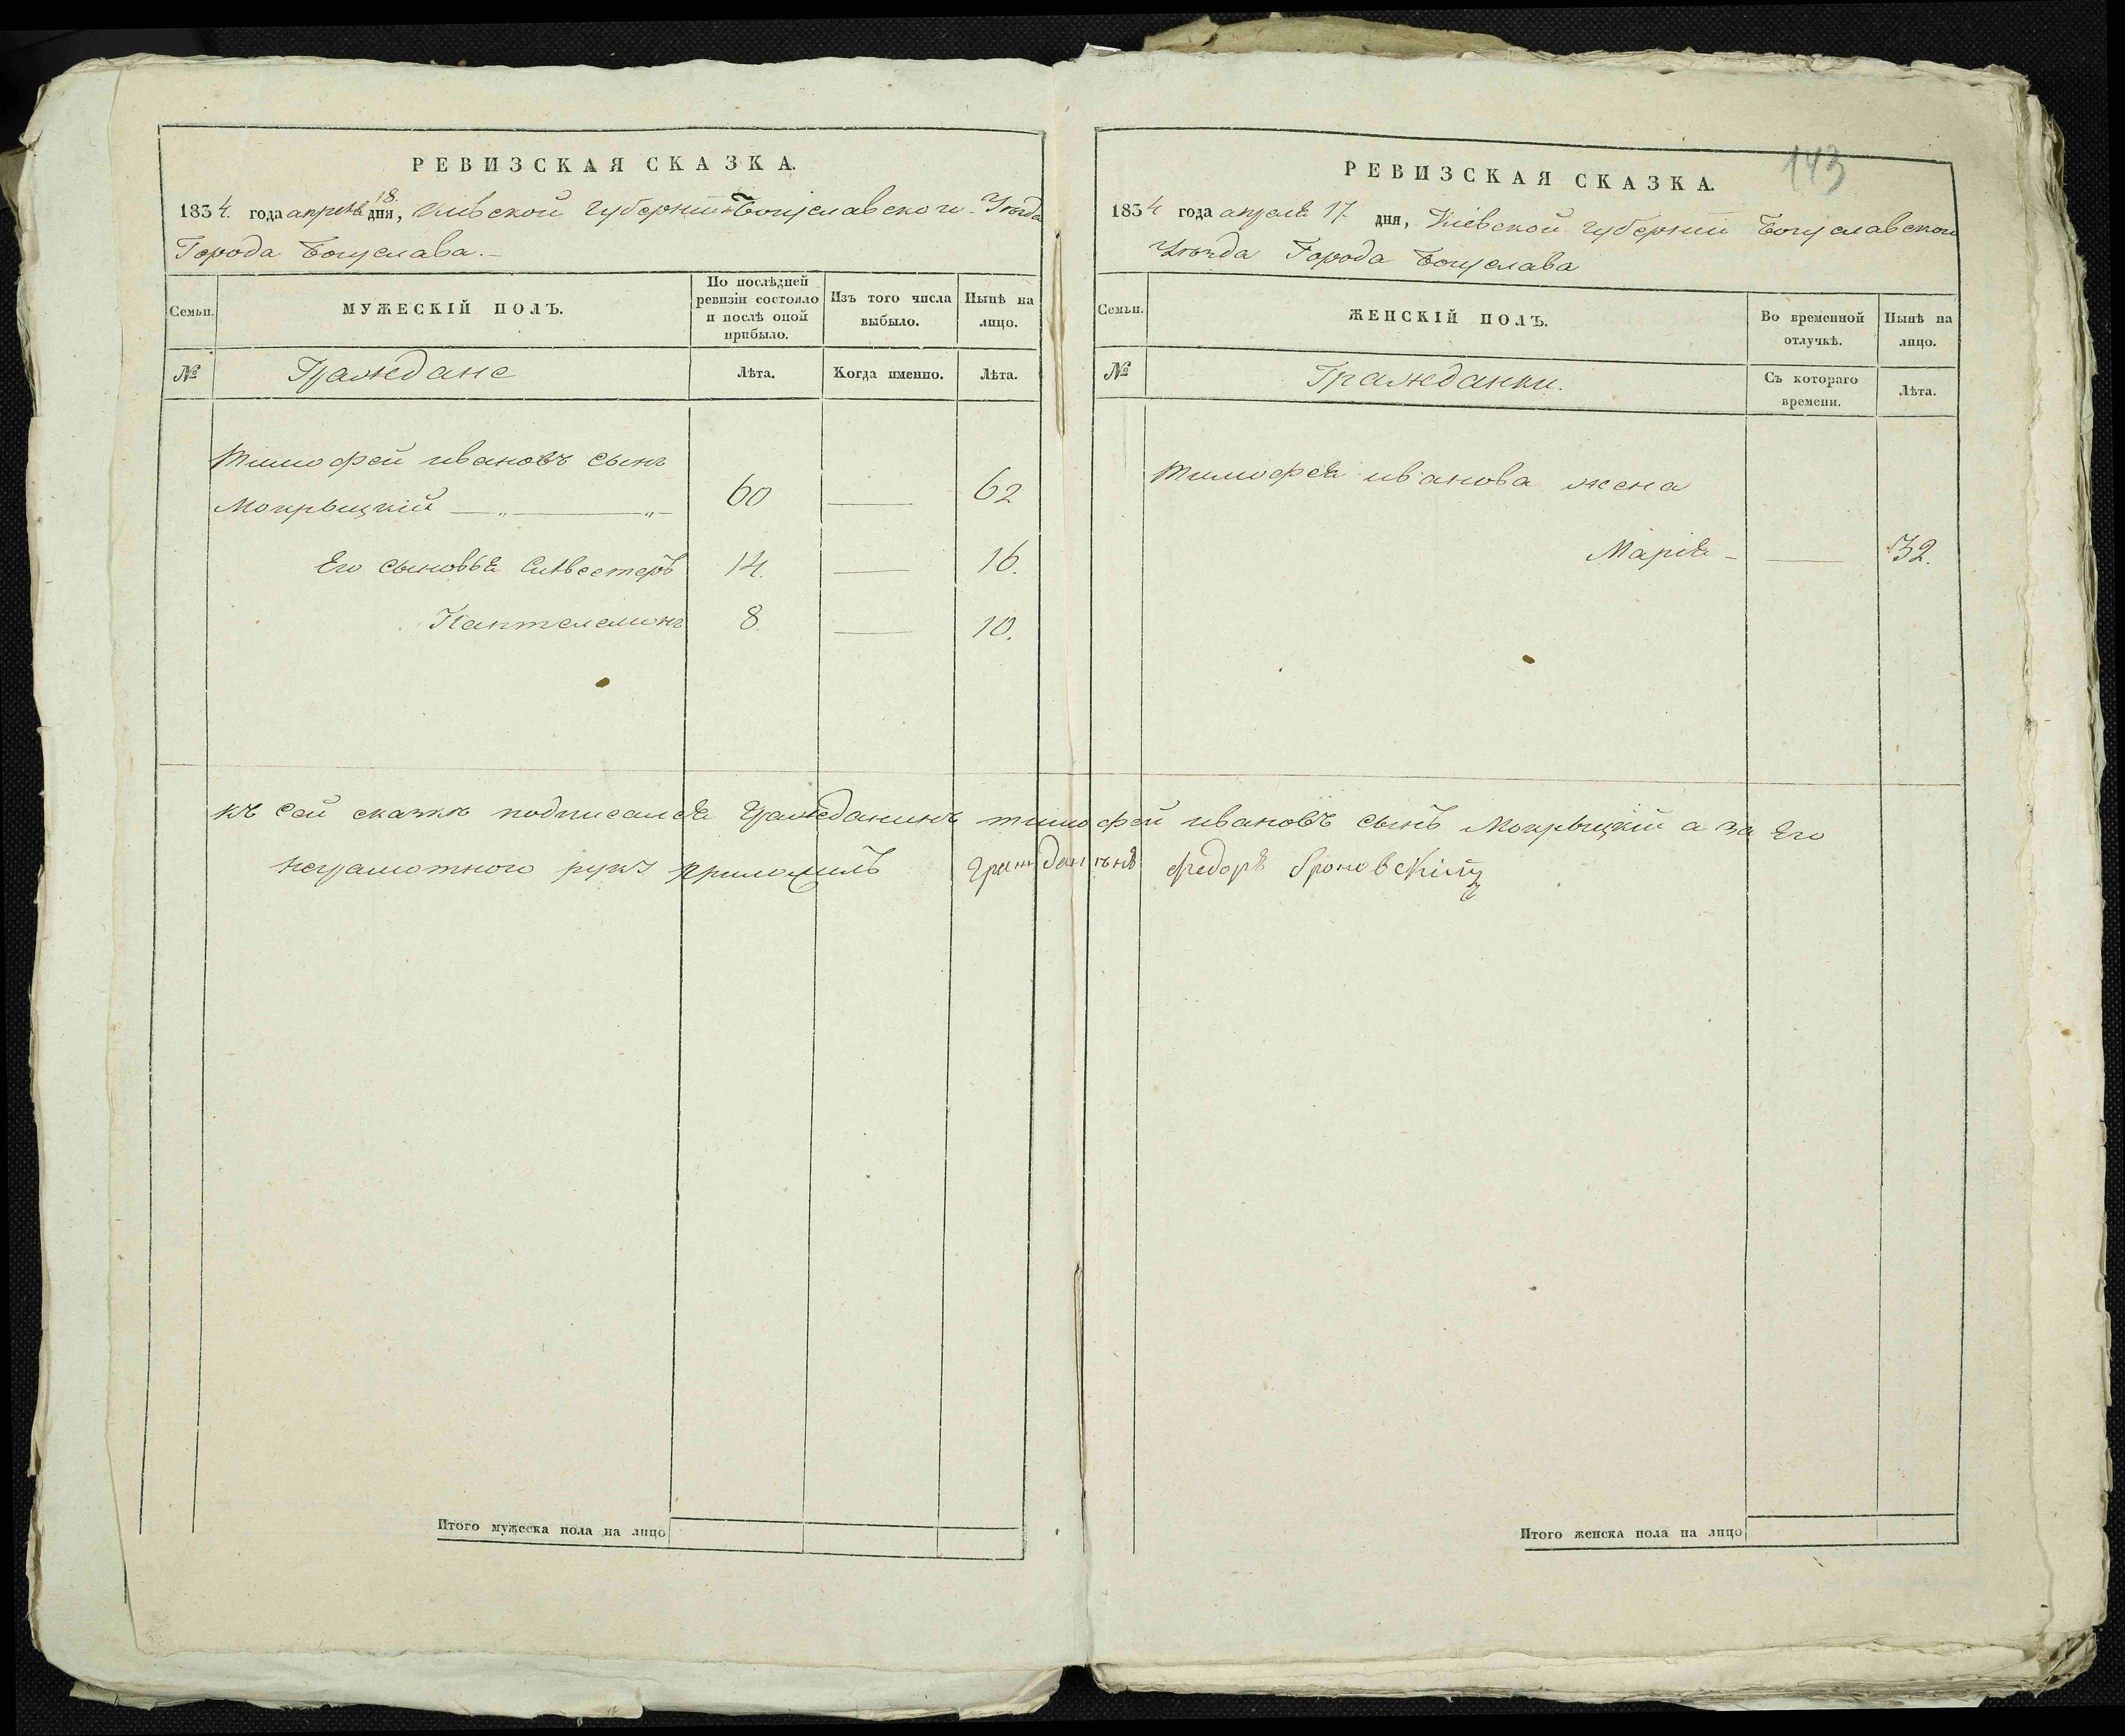 РЕВИЗСКАЯ СКАЗКА.
1834. года апреля 18. дня, Кіевской Губерніи Богуславского Уезда
Города Богуслава.
Семьи.
МУЖЕСКІЙ ПОЛЪ.
По послѣдней ревизіи состояло и послѣ оной прибыло.
Изъ того числа выбыло.
Нынѣ на лицо.
№
Граждане
Лѣта.
Когда именно.
Лѣта.
Тимофей ивановъ сынъ
Мокрыцкій 60 — 62
Его сыновья Силвестеръ 14. — 16.
Пантелемонъ 8. — 10.
Итого мужеска пола на лицо
143
РЕВИЗСКАЯ СКАЗКА.
1834 года апреля 17 дня, Кіевской Губерніи Богуславского
Уезда Города Богуслава
Семьи.
ЖЕНСКІЙ ПОЛЪ.
Во временной отлучкѣ.
Нынѣ на лицо.
№
Гражданки.
Съ котораго времени.
Лѣта.
Тимофея иванова жена
Марія — 32.
къ сей сказкѣ подписался Гражданинъ тимофей ивановъ сынъ Мокрыцкій а за Его
неграмотного руку приложилъ Гражданинъ Федоръ
Итого женска пола на лицо